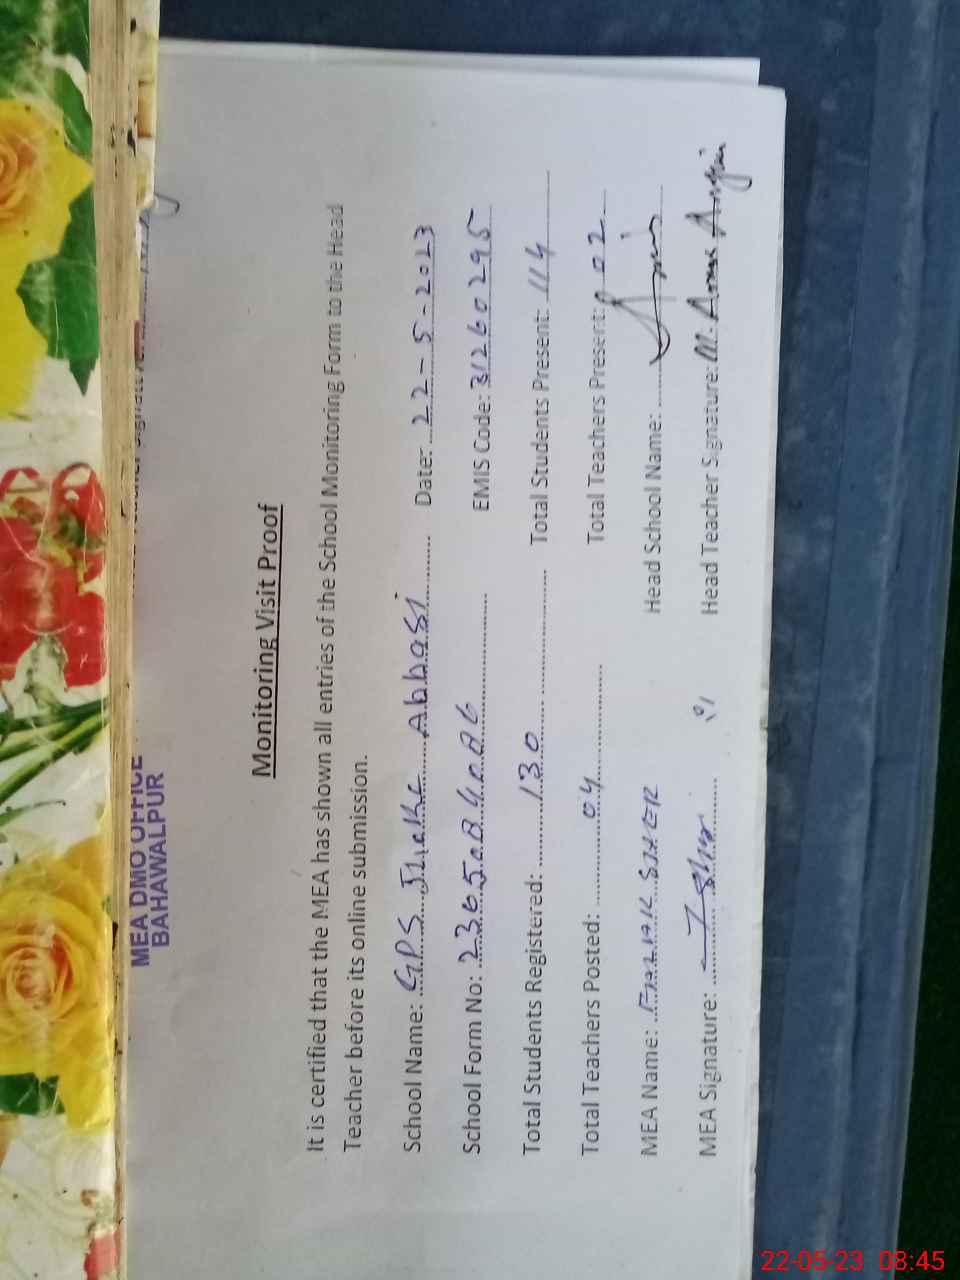 MEA DMO OFFICE
BAHAWALPUR
Monitoring Visit Proof
It is certified that the MEA has shown all entries of the School Monitoring Form to the Head
Teacher before its online submission.
School Name: GPS Abbasi Date: 22-5-2023
School Form No: EMIS Code: 31260295
Total Students Registered: 130 Total Students Present: 114
Total Teachers Posted: 04 Total Teachers Present: 02
MEA Name: Head School Name:
MEA Signature: Head Teacher Signature: M.
22-05-23 08:45